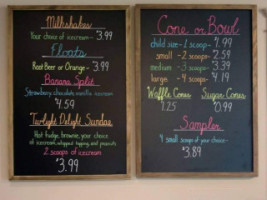 Milkshakes
Your choice of icecream - 3.99
Floats
Root Beer or Orange - 3.99
Banana Split
Strawberry chocolate vanilla icecream
$4.59
Twilight Delight Sundae
Hot fudge, brownie, your choice
of icecream, whipped topping, and peanuts
2 scoops of icecream
$3.99
Cone or Bowl
child size - 1 scoop -
small - 2 scoops - 2.59
medium - 3 scoops - 3.39
large - 4 scoops - 4.19
Waffle Cones Sugar Cones
$0.99
Sampler
4 small scoops of your choice -
$3.89